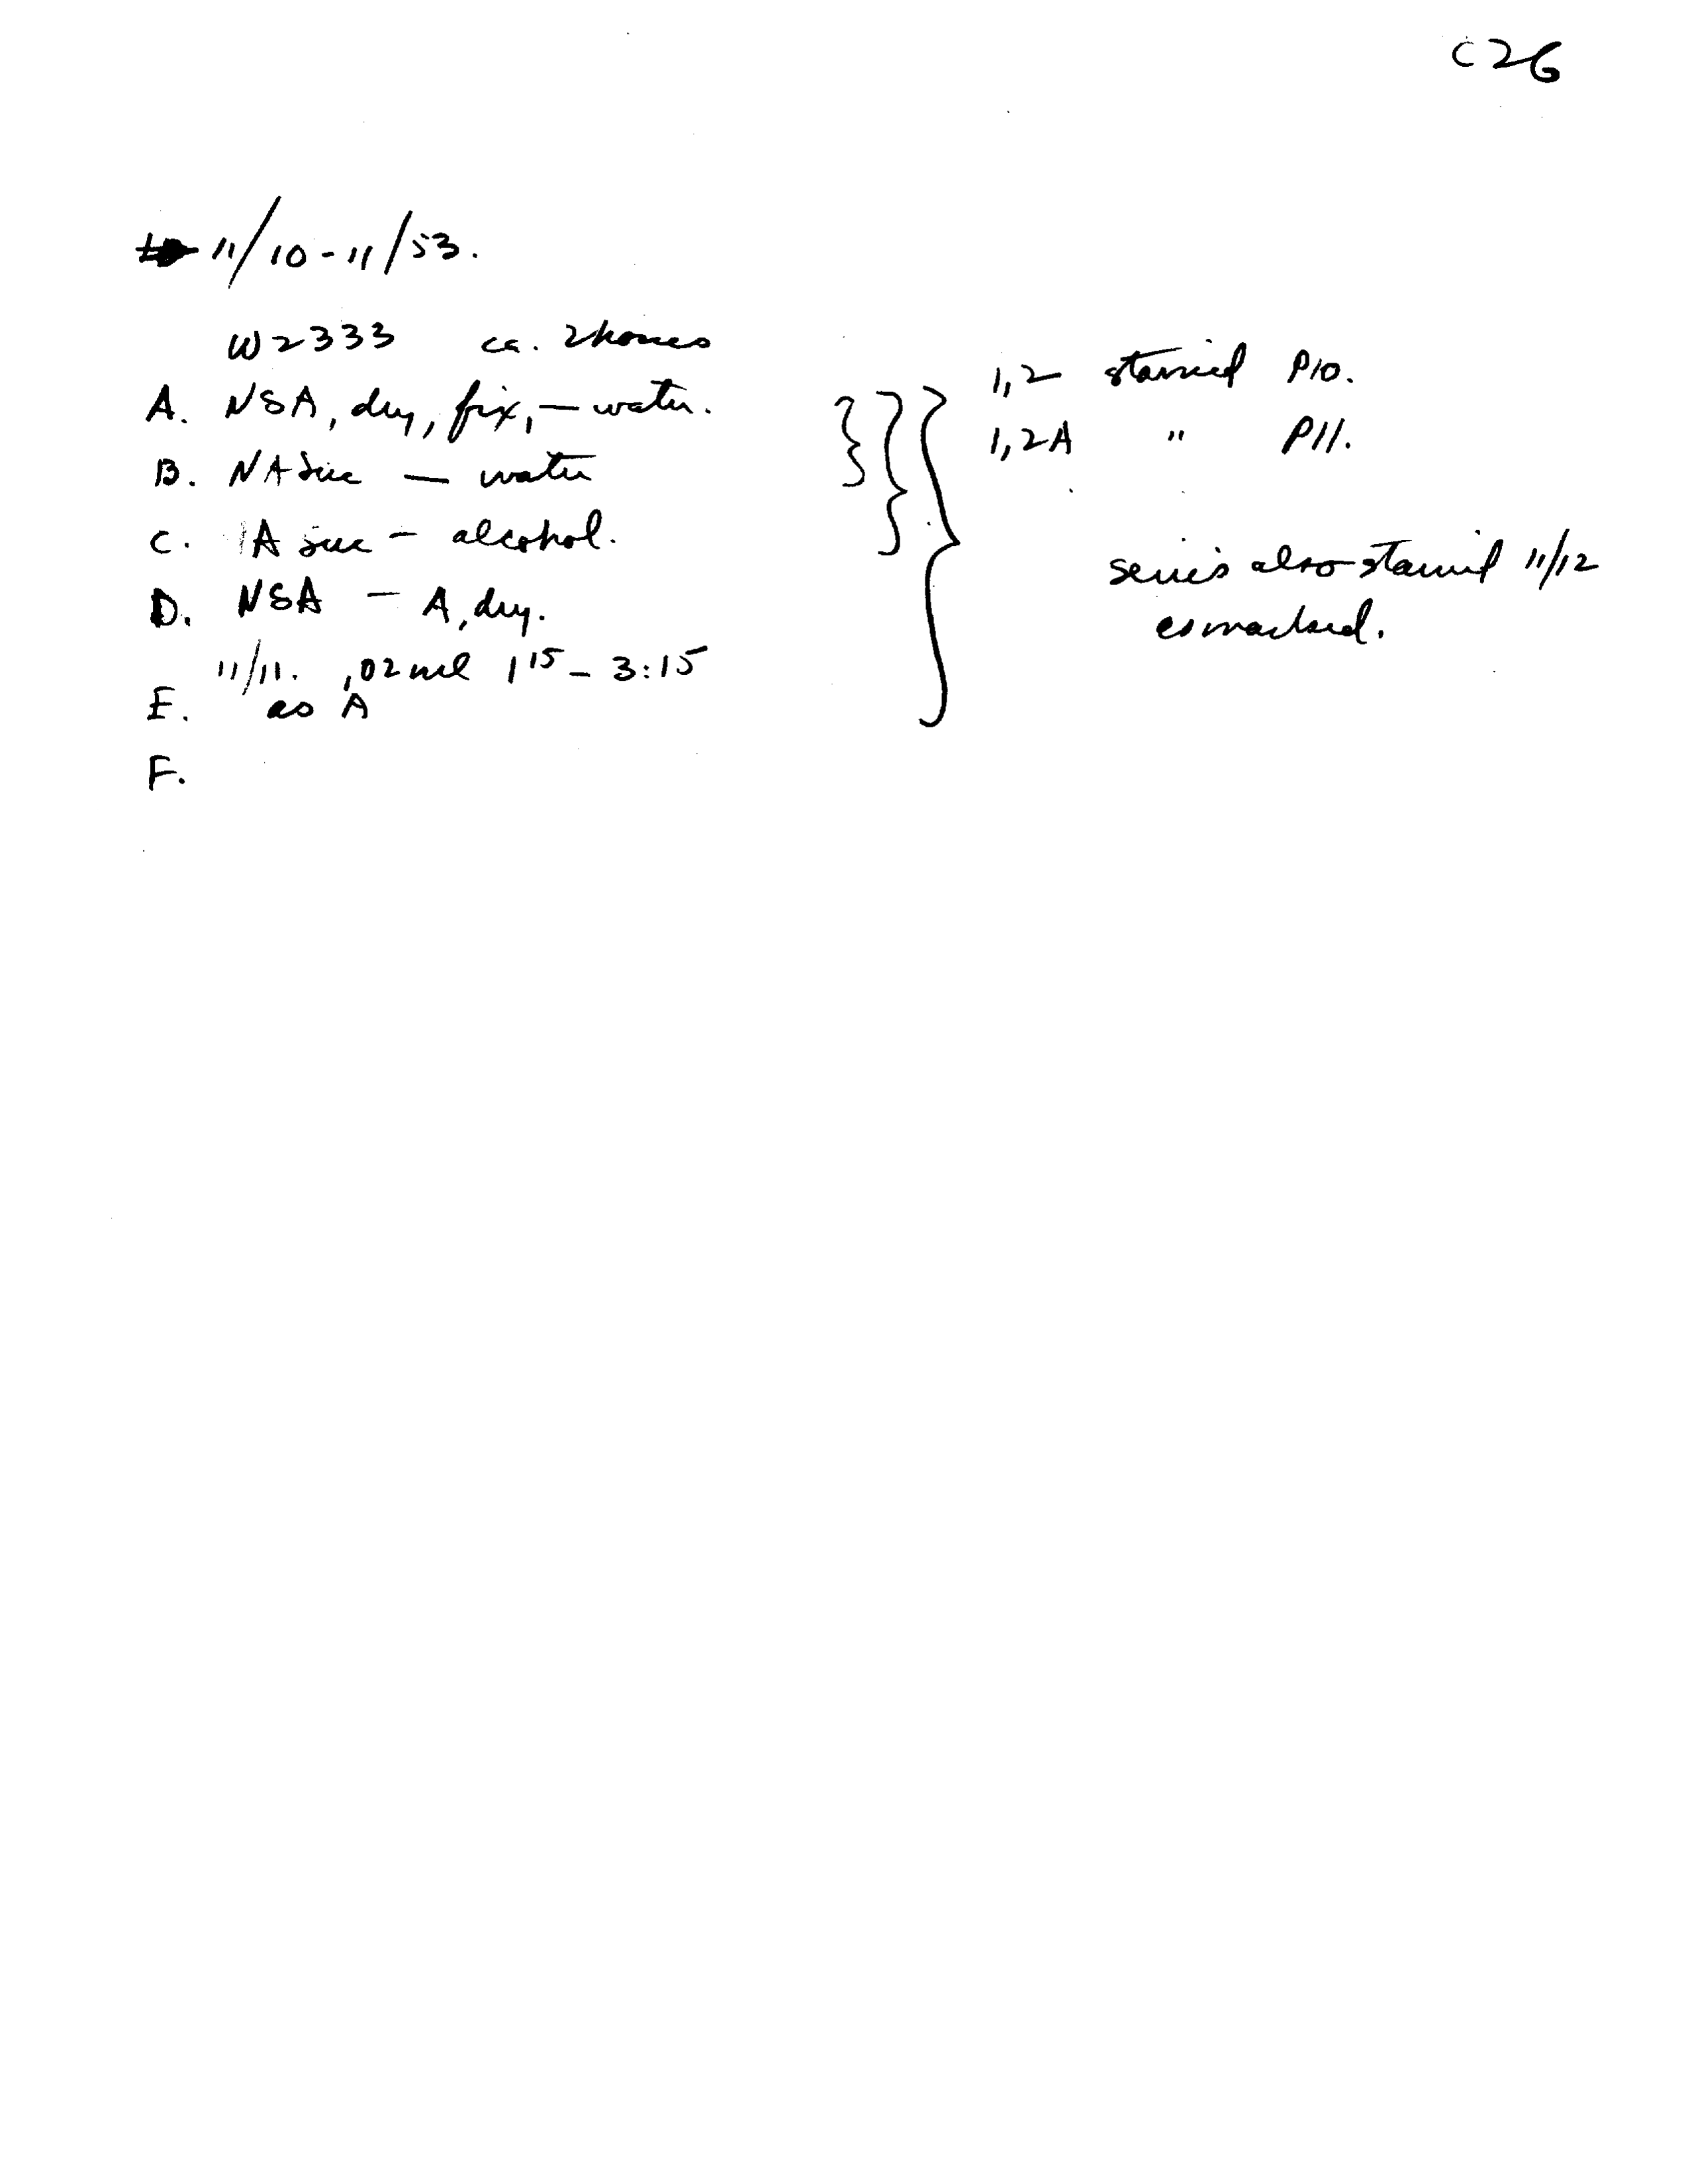 C26
11/10-11/53.
W2333 ca. 2 hours
A. NSA, dry, fix, — water.
B. NA Suc — water
C. A suc — alcohol.
D. NSA — A, dry.
11/11. ,02 ml 1 15 - 3:15
E. as A
F.
1,2 stained P10.
1,2A " P11.
series also stained 11/12
as marked.